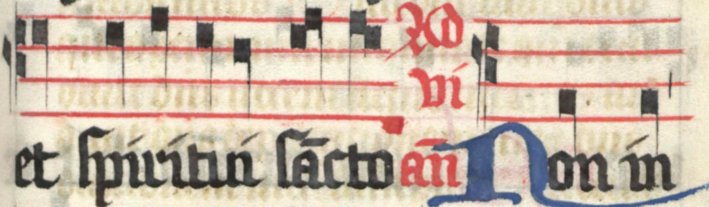 Ad
vi
et spiritui sācto añ Non in